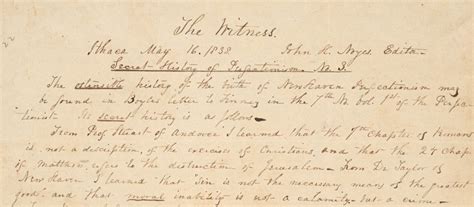 22
The Witness.
Ithaca May 16, 1838 John H. Noyes Editor
Secret History of Perfectionism. No. 3.
The ostensible history of the birth of New Haven Perfectionism may
be found in Boyle's letter to Finney in the 7th No. vol. 1st of the Perfec-
tionist. Its secret history is as follows—
From Prof Stuart of Andover I learned that the 7th Chapter of Romans
is not a description, of the exercises of Christians, and that the 24 Chap
of Matthew, refers to the destruction of Jerusalem— From Dr Taylor of
New Haven I learned that sin is not the necessary, means of the greatest
good, and that moral inability is not a calamity— but a crime—